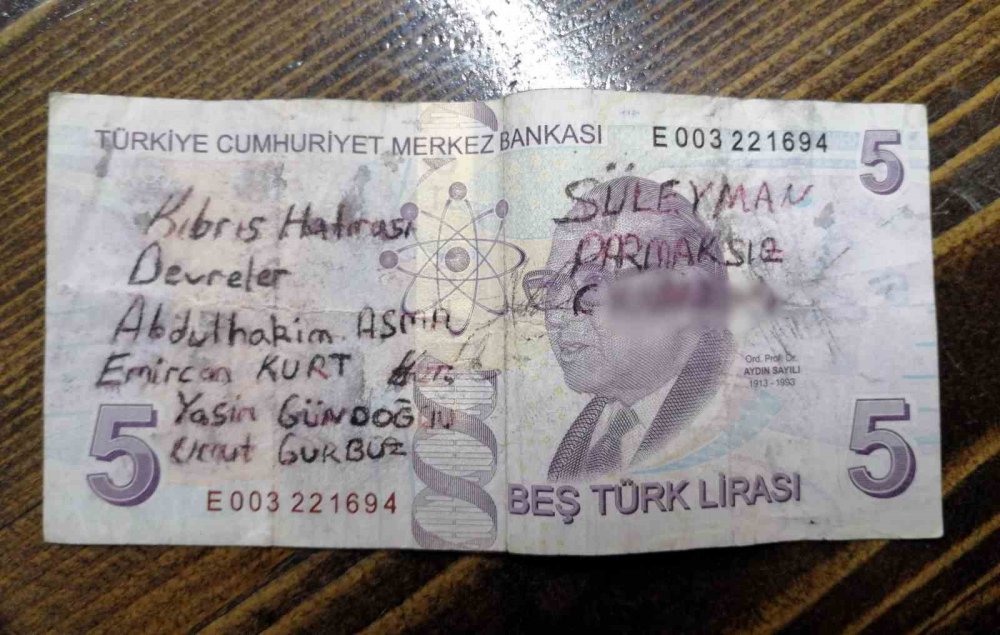 TÜRKİYE CUMHURİYET MERKEZ BANKASI
E 003 221694
5
Kıbrıs Hatırası
Devreler
Abdulhakim ASMA
Emircan KURT
Yasin GÜNDOĞDU
Umut GURBUZ
SÜLEYMAN
PARMAKSIZ
Ord. Prof. Dr.
AYDIN SAYILI
1913 - 1993
5
5
E 003 221694
BEŞ TÜRK LİRASI